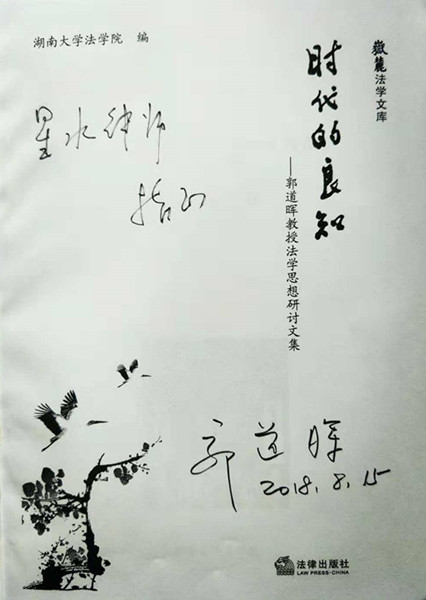 嶽麓法学文库
时代的良知
——郭道晖教授法学思想研讨文集
湖南大学法学院 编
星水律师
指正
郭道晖
2018.8.15
法律出版社
LAW PRESS·CHINA